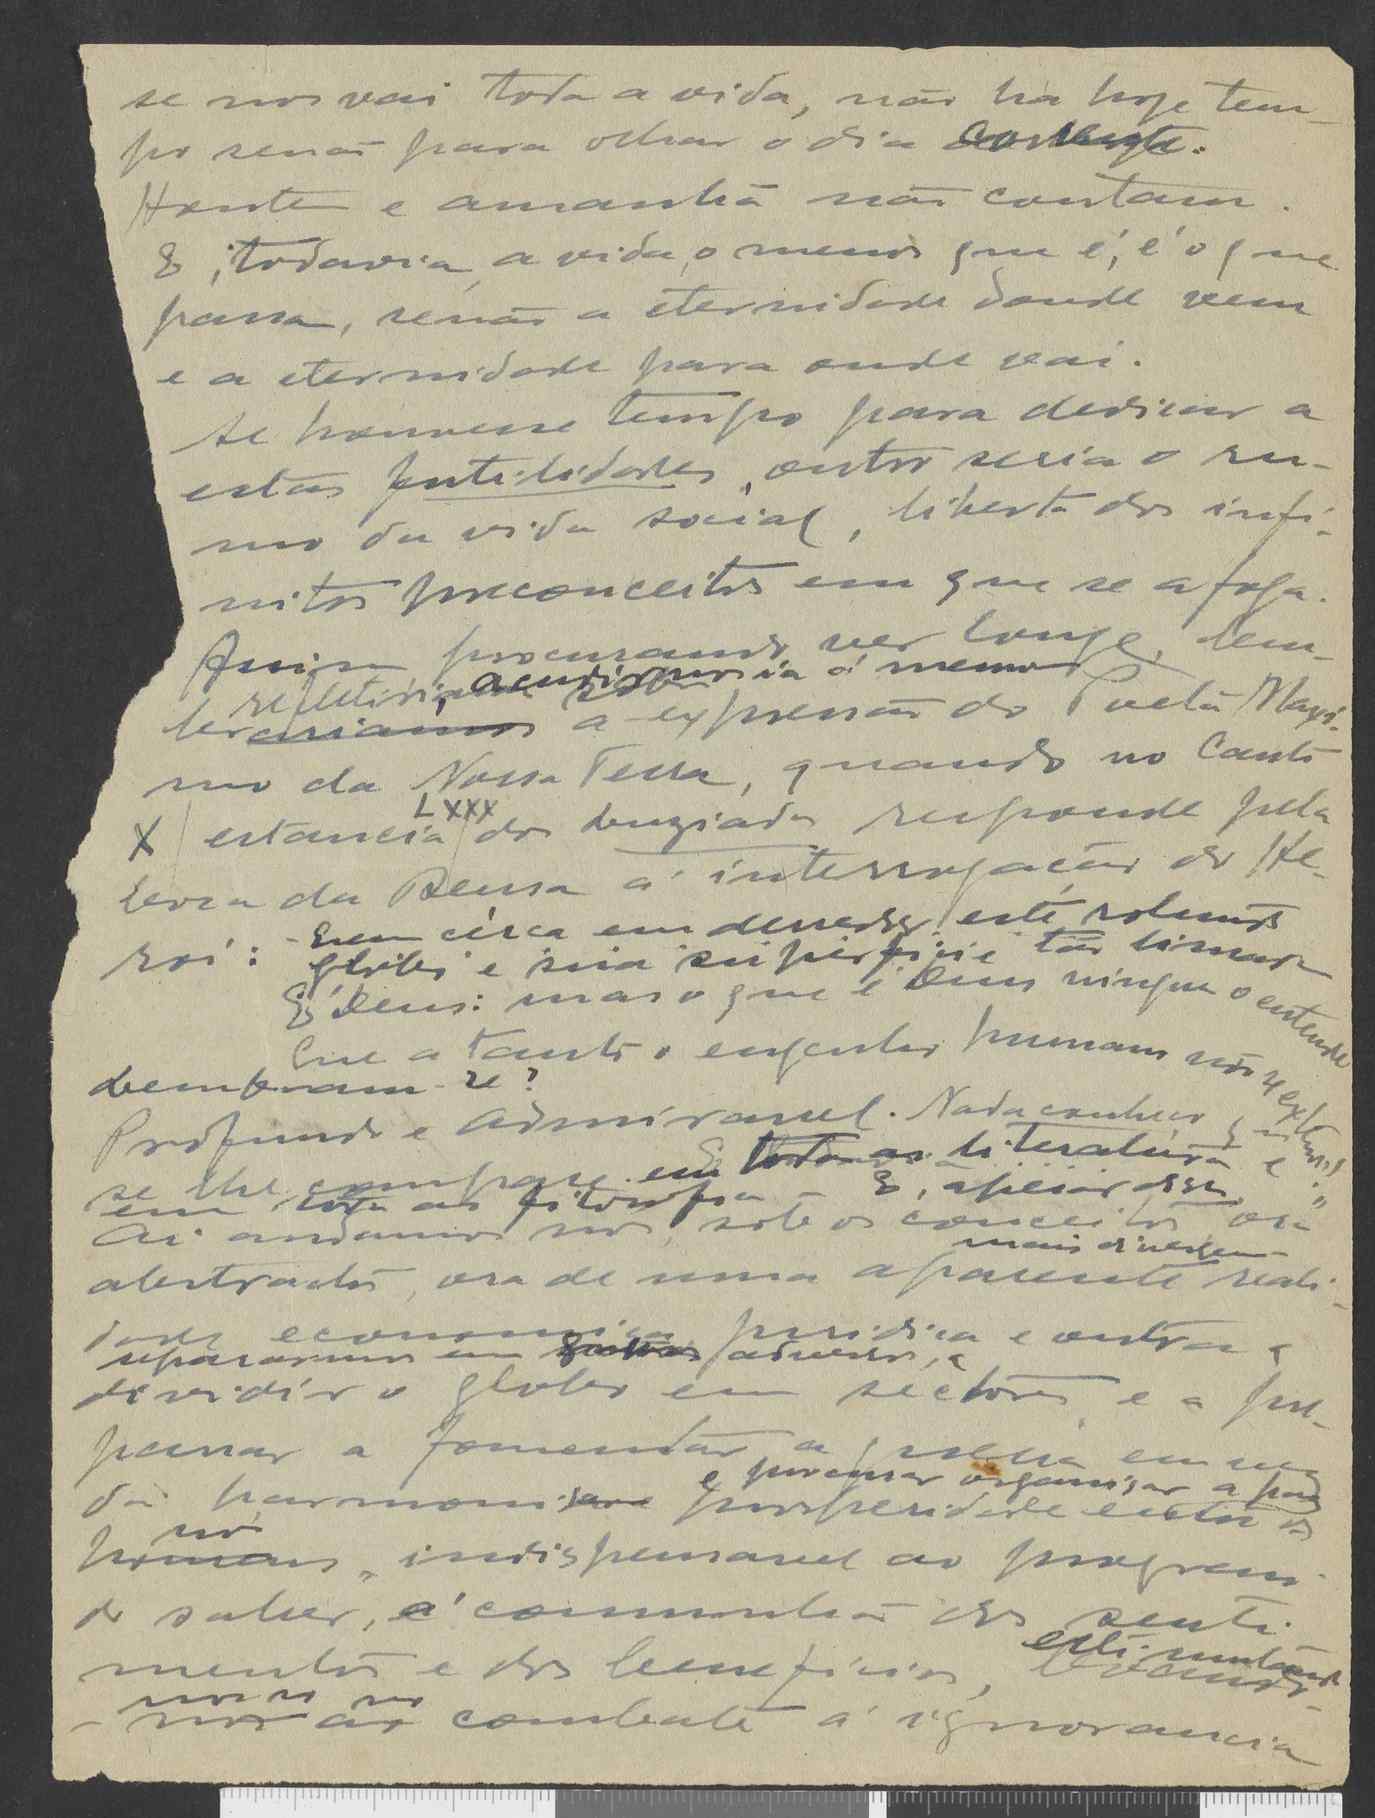 se nos vai toda a vida, não ha hoje tem-
po senão para olhar o dia
Hontem e amanhã não contam.
E, todavia, a vida, o menos que é, é o que
passa, senão a eternidade donde vem
e a eternidade para onde vai.
Se houvesse tempo para dedicar a
estas futilidades, outro seria o ru-
mo da vida social, liberta dos infi-
nitos preconceitos em que se afoga.
Assim procurando ver longe, lem-
acudir-nos-ia á memor
a expressão do Poeta Maxi-
mo da Nossa Terra, quando no Canto
LXXX
X estancia dos Luziadas responde pela
boca da Deusa á interrogação do He-
roi: Quem cérca em derredor este rotundo
globo e sua superficie tão limada
É Deus: mas o que é Deus ninguem o entende
Que a tanto o engenho humano não se extende!"
Lembram-se?
Profundo e admiravel. Nada conheço que
se lhe compare em toda a literatura e
em toda a filosofia. E, apesar disso,
Ai andamos nós, sob os conceitos ora
mais divergem
abstractos, ora de uma aparente reali-
dade economica, juridica e outra a
separarmo-nos em adversos, a
dividir o globo em séctores, e a
pensar a fomentar a guerra em vez
e procurar organisar a paz
da harmonia prosperidade entre os
homens, indispensavel ao progresso
do saber, á comunhão dos senti-
mentos e dos beneficios,
estimulando
nos no combate á ignorancia